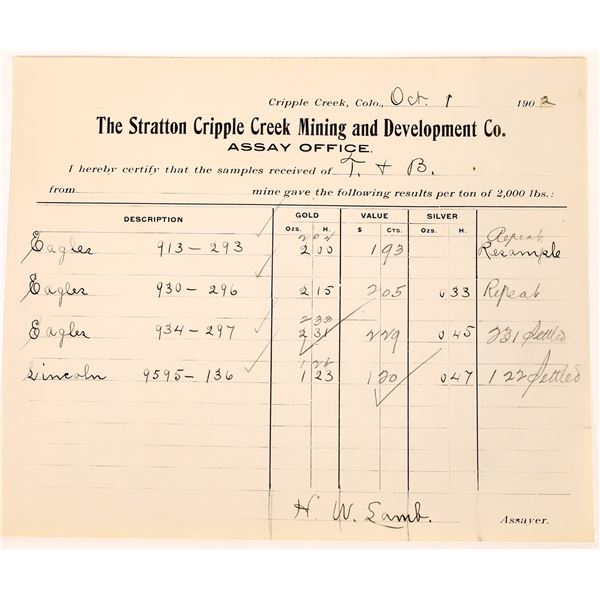 Cripple Creek, Colo., Oct. 1 1902
The Stratton Cripple Creek Mining and Development Co.
ASSAY OFFICE.
I hereby certify that the samples received of T. + B.
from mine gave the following results per ton of 2,000 lbs.:
DESCRIPTION GOLD VALUE SILVER
Ozs. H. $ Cts. Ozs. H.
202 Repeat
Eagles 913-293 2 00 1 93 Resample
Eagles 930-296 2 15 2 05 0 33 Repeat
2 33
Eagles 934-297 2 31 2 29 0 45 231 Settled
Lincoln 9595-136 1 23 1 20 0 47 1 22 Settled
H. W. Lamb. Assayer.